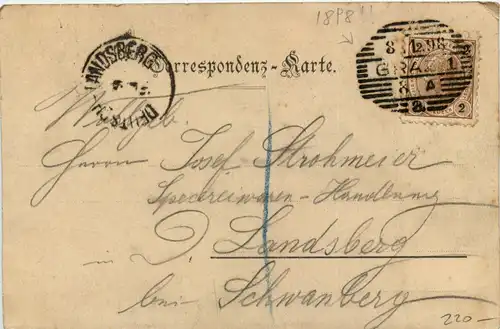 1898!!
LANDSBERG
DEUTSCH
Correspondenz-Karte.
8 12 98
GRAZ 1
8 A
2
2
Wohlgeb.
Herrn Josef Strohmeier
Spezereiwaren-Handlung
D. Landsberg
bei Schwanberg
220-